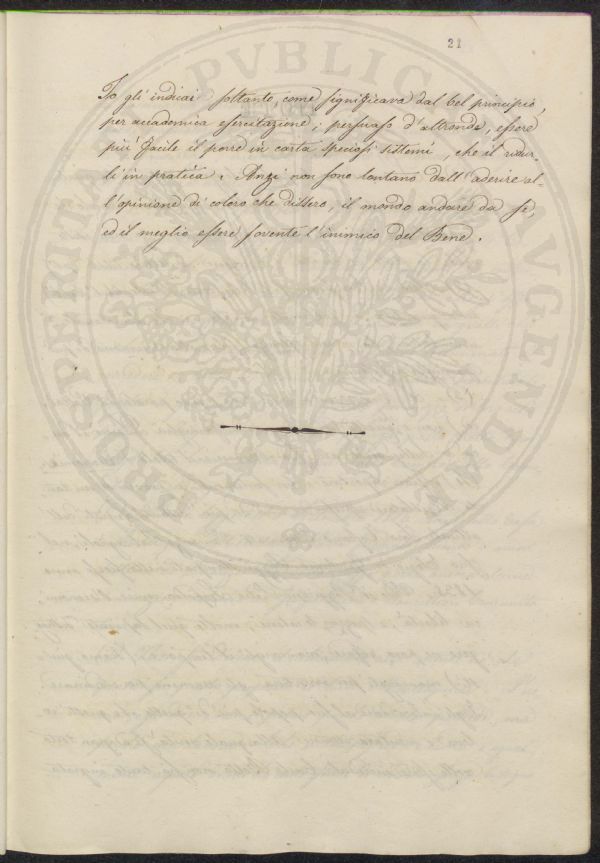 21
Io gli indicai soltanto, come significava dal bel principio,
per accademica esercitazione; persuaso d'altronde, essere
più facile il porre in carta speciosi sistemi, che il ridur-
li in pratica. Anzi non sono lontano dall'aderire al-
l'opinione di coloro che dissero, il mondo andare da se,
ed il meglio essere sovente l'inimico del Bene.
PROSPERITATI PVBLICAE AVGENDAE